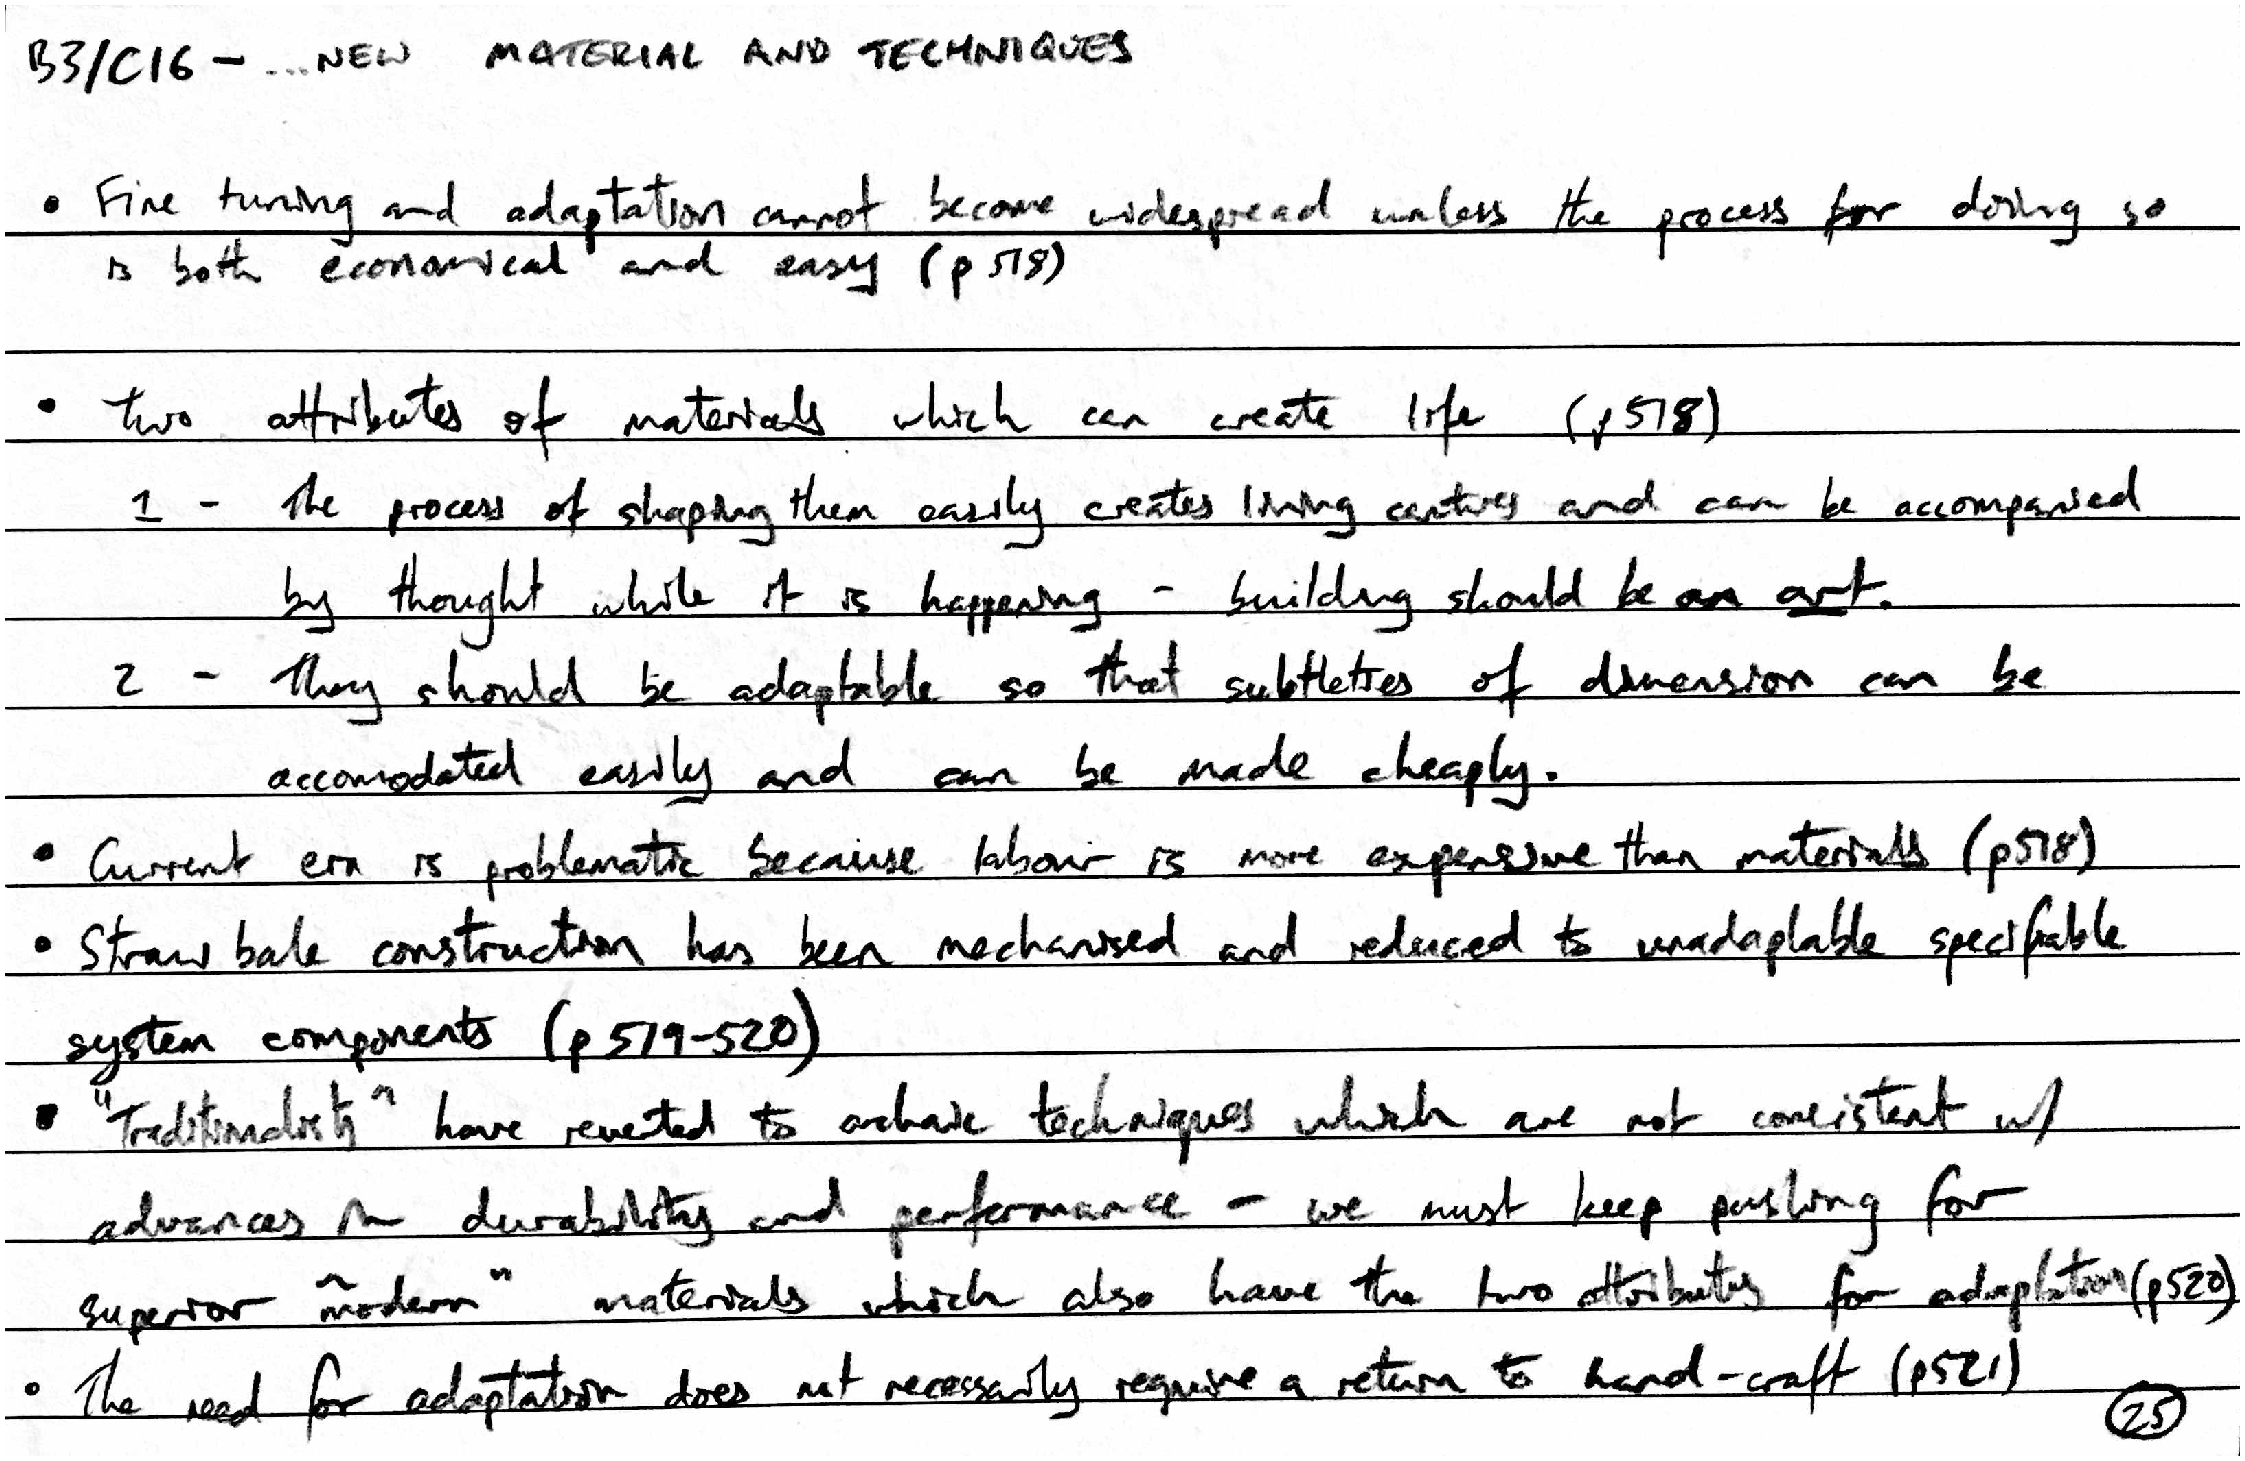 B3/C16 - ...NEW MATERIAL AND TECHNIQUES
• Fine tuning and adaptation cannot become widespread unless the process for doing so
is both economical and easy (p518)
• Two attributes of materials which can create life (p518)
1 - The process of shaping them easily creates living centres and can be accompanied
by thought while it is happening - building should be an art.
2 - They should be adaptable so that subtleties of dimension can be
accomodated easily and can be made cheaply.
• Current era is problematic because labour is more expensive than materials (p518)
• Straw bale construction has been mechanised and reduced to unadaptable specifiable
system components (p519-520)
• "Traditionalists" have reverted to archaic techniques which are not consistent w/
advances in durability and performance - we must keep pushing for
superior "modern" materials which also have the two attributes for adaptation (p520)
• The need for adaptation does not necessarily require a return to hand-craft (p521)
25